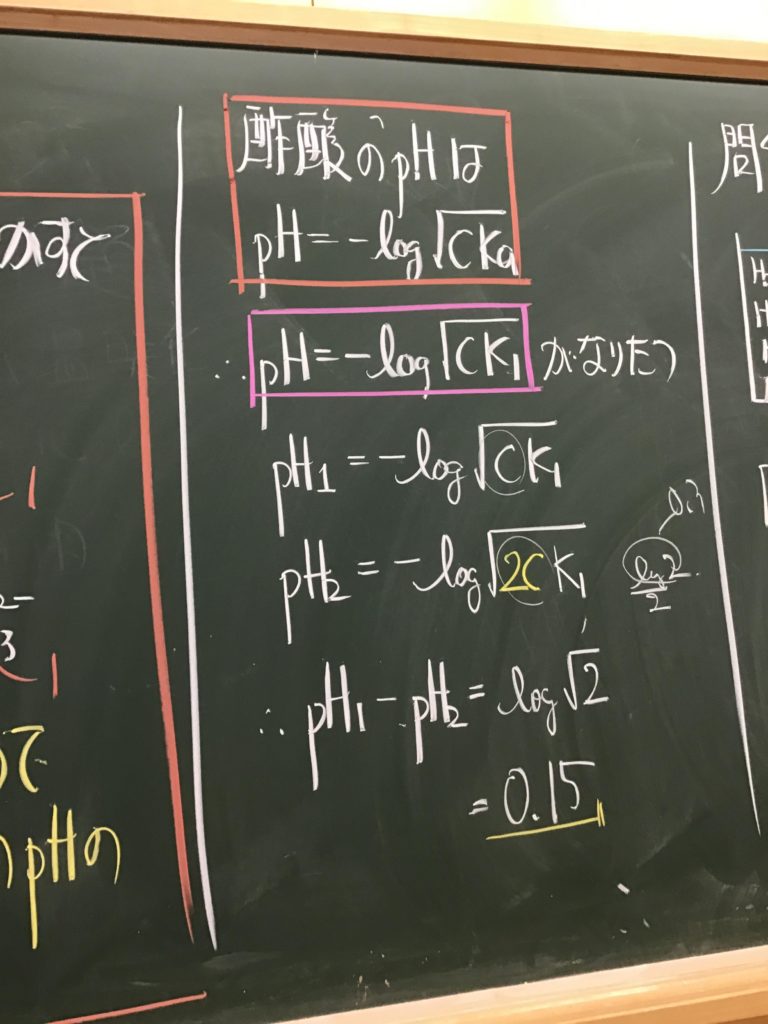 かすと
-1
2-
3
1
て
pHの
酢酸のpHは
pH=-log√CKa
∴pH=-log√CK₁ がなりたつ
pH₁=-log√CK₁
pH₂=-log√2CK₁
log2/2
0.3
∴pH₁-pH₂=log√2
=0.15
問
H
H